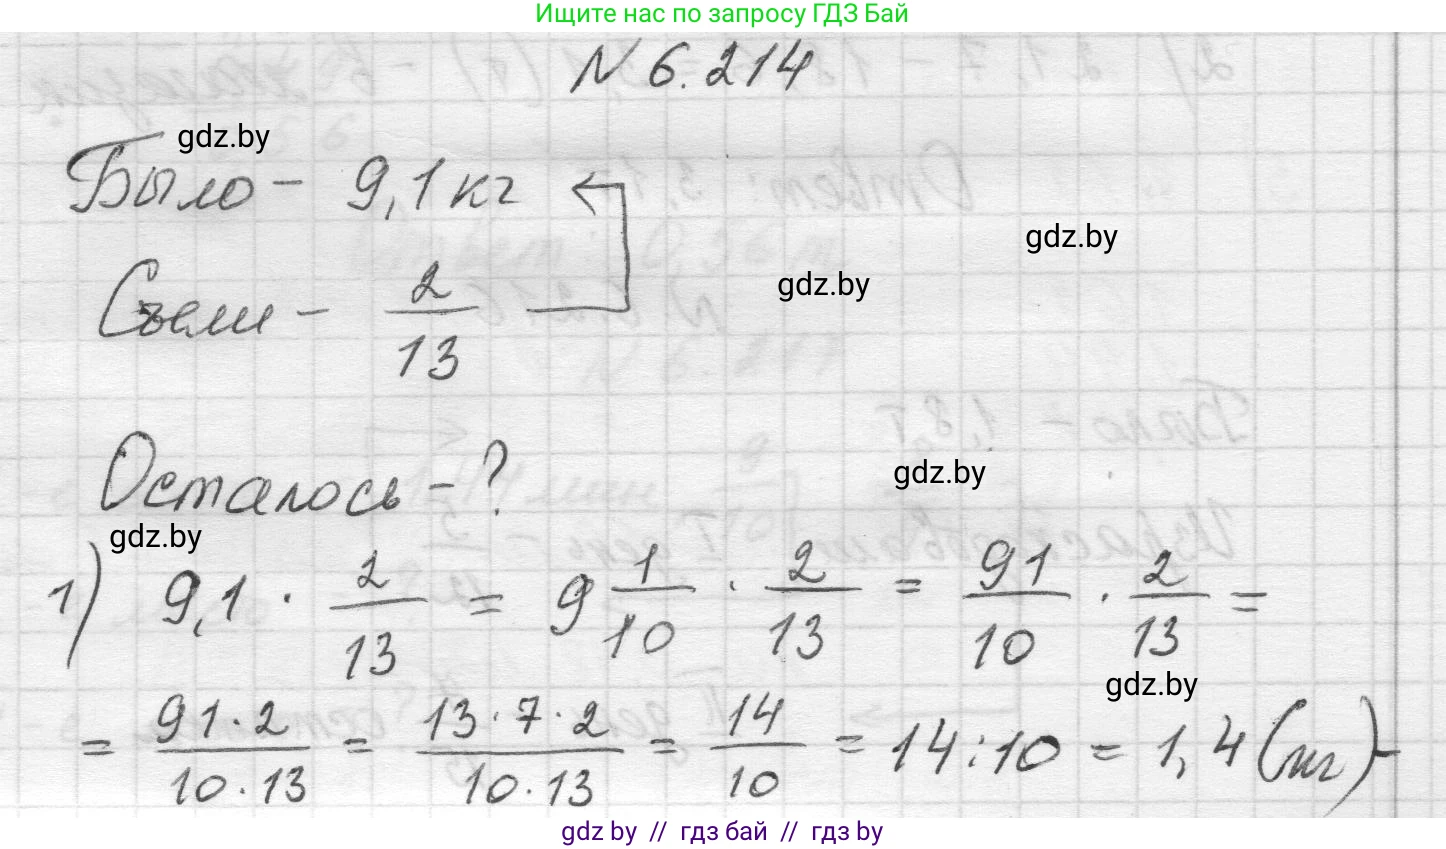 Ищите нас по запросу ГДЗ Бай
N 6.214
gdz.by
Было - 9,1 кг
gdz.by
gdz.by
Съели - 2/13
Осталось - ?
gdz.by
gdz.by
1) 9,1 · 2/13 = 9 1/10 · 2/13 = 91/10 · 2/13 =
gdz.by
= 91·2/10·13 = 13·7·2/10·13 = 14/10 = 14:10 = 1,4 (кг) -
gdz by // гдз бай // гдз by